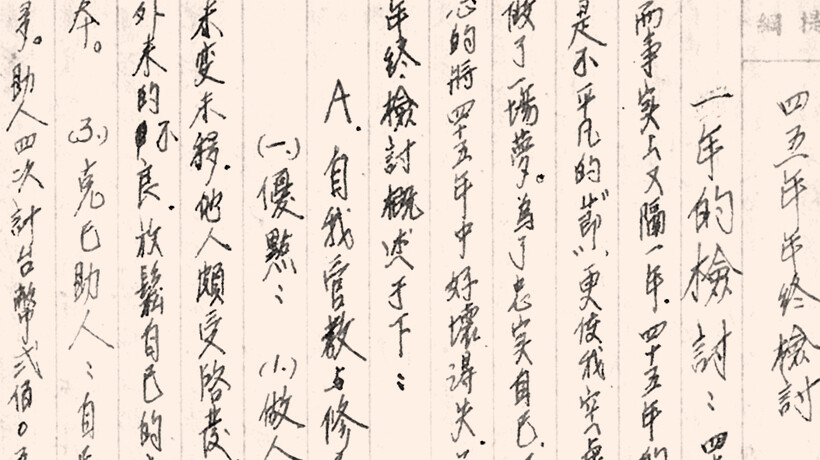 提綱
四五年年終檢討
一年的檢討：四
而事実上又隔一年。四十五年的
是不平凡的“節”，更使我空虛
做了一場夢。為了忠実自己，
的將四十五年中好壞得失，
年終檢討概述于下：
A. 自我管教与修
(一)優點： (1.)做人
未变未移。他人頗受啓發
外来的不良。放鬆自己的
本。 (3.)克己助人：自
多。助人四次計台幣弍佰0